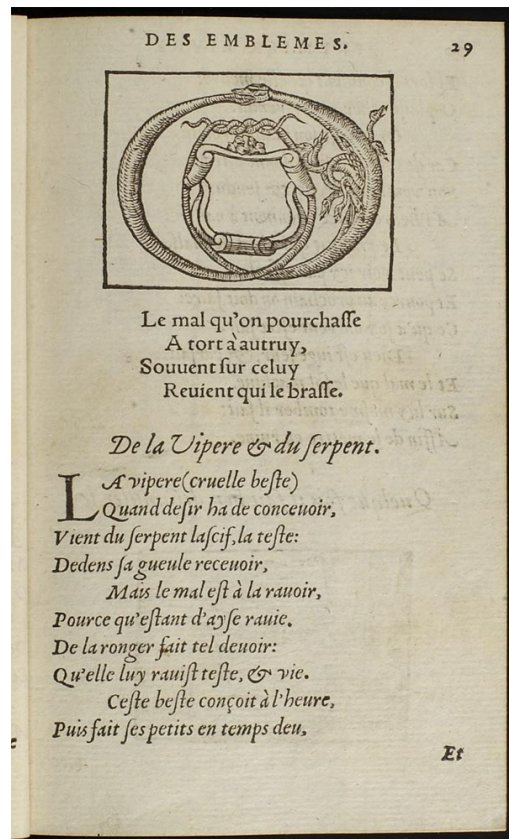 DES EMBLEMES.
29
Le mal qu'on pourchaſſe
A tort à autruy,
Souuent ſur celuy
Reuient qui le braſſe.
De la Vipere & du ſerpent.
LA vipere (cruelle beſte)
Quand deſir ha de conceuoir,
Vient du ſerpent laſcif, la teſte:
Dedens ſa gueule receuoir,
Mais le mal eſt à la rauoir,
Pource qu'eſtant d'ayſe rauie.
De la ronger fait tel deuoir:
Qu'elle luy rauiſt teſte, & vie.
Ceſte beſte conçoit à l'heure,
Puis fait ſes petits en temps deu,
Et